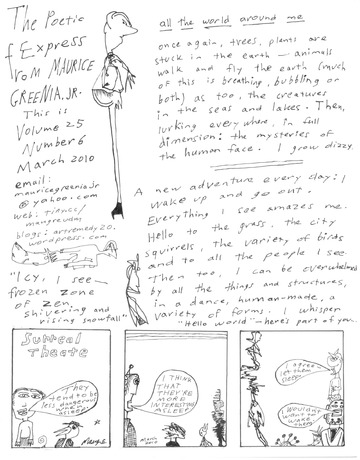 The Poetic
Express
from MAURICE
GREENIA, JR.
This is
Volume 25
Number 6
March 2010
email:
mauricegreeniajr
@yahoo.com
web:
blogs: artremedy20.
wordpress.com
"Icy, I see—
frozen zone
of zen,
shivering and
rising snowfall"
all the world around me
once again, trees, plants are
stuck in the earth — animals
walk and fly the earth (much
of this is breathing, bubbling or
both) as too, the creatures
in the seas and lakes. Then,
lurking everywhere, in full
dimension: the mysteries of
the human face. I grow dizzy.
A new adventure every day: I
wake up and go out.
Everything I see amazes me.
Hello to the grass, the city
squirrels, the variety of birds
and to all the people I see.
Then too, I can be overwhelmed
by all the things and structures,
in a dance, human-made, a
variety of forms. I whisper
"Hello world"—here's part of you...
Surreal
Theatre
They
tend to be
less dangerous
when
asleep
I THINK
THAT
THEY'RE
MORE
INTERESTING
ASLEEP
March 2010
I agree
let them
sleep
I wouldn't
want to
wake
them